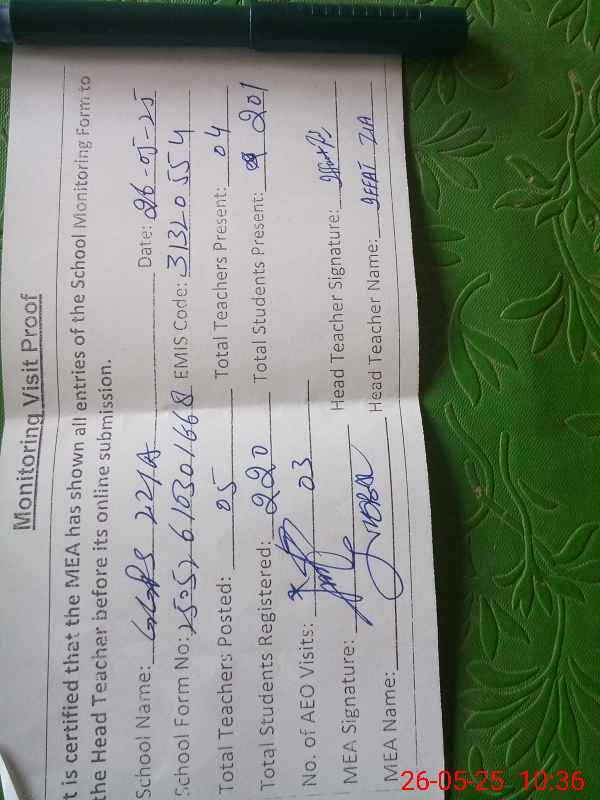 Monitoring Visit Proof
t is certified that the MEA has shown all entries of the School Monitoring Form to
the Head Teacher before its online submission.
School Name: GGPS 221A Date: 26-05-25
School Form No: 2505261030 1668 EMIS Code: 31320554
Total Teachers Posted: 05 Total Teachers Present: 04
Total Students Registered: 220 Total Students Present: 201
No. of AEO Visits: 03
MEA Signature: Head Teacher Signature:
MEA Name: Head Teacher Name: IFFAT ZIA
26-05-25 10:36